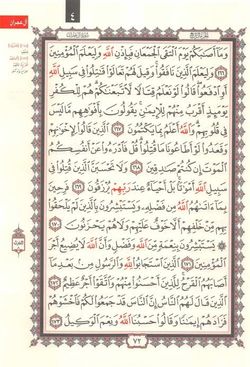 آل عمران
٤
وَمَا أَصَابَكُمْ يَوْمَ الْتَقَى الْجَمْعَانِ فَبِإِذْنِ اللَّهِ وَلِيَعْلَمَ الْمُؤْمِنِينَ
﴿١٦٦﴾ وَلِيَعْلَمَ الَّذِينَ نَافَقُوا وَقِيلَ لَهُمْ تَعَالَوْا قَاتِلُوا فِي سَبِيلِ اللَّهِ
أَوِ ادْفَعُوا قَالُوا لَوْ نَعْلَمُ قِتَالًا لَاتَّبَعْنَاكُمْ هُمْ لِلْكُفْرِ
يَوْمَئِذٍ أَقْرَبُ مِنْهُمْ لِلْإِيمَانِ يَقُولُونَ بِأَفْوَاهِهِمْ مَا لَيْسَ
فِي قُلُوبِهِمْ وَاللَّهُ أَعْلَمُ بِمَا يَكْتُمُونَ ﴿١٦٧﴾ الَّذِينَ قَالُوا لِإِخْوَانِهِمْ
وَقَعَدُوا لَوْ أَطَاعُونَا مَا قُتِلُوا قُلْ فَادْرَءُوا عَنْ أَنْفُسِكُمُ
الْمَوْتَ إِنْ كُنْتُمْ صَادِقِينَ ﴿١٦٨﴾ وَلَا تَحْسَبَنَّ الَّذِينَ قُتِلُوا فِي
سَبِيلِ اللَّهِ أَمْوَاتًا بَلْ أَحْيَاءٌ عِنْدَ رَبِّهِمْ يُرْزَقُونَ ﴿١٦٩﴾ فَرِحِينَ
بِمَا آتَاهُمُ اللَّهُ مِنْ فَضْلِهِ وَيَسْتَبْشِرُونَ بِالَّذِينَ لَمْ يَلْحَقُوا
بِهِمْ مِنْ خَلْفِهِمْ أَلَّا خَوْفٌ عَلَيْهِمْ وَلَا هُمْ يَحْزَنُونَ ﴿١٧٠﴾
يَسْتَبْشِرُونَ بِنِعْمَةٍ مِنَ اللَّهِ وَفَضْلٍ وَأَنَّ اللَّهَ لَا يُضِيعُ أَجْرَ
الْمُؤْمِنِينَ ﴿١٧١﴾ الَّذِينَ اسْتَجَابُوا لِلَّهِ وَالرَّسُولِ مِنْ بَعْدِ مَا
أَصَابَهُمُ الْقَرْحُ لِلَّذِينَ أَحْسَنُوا مِنْهُمْ وَاتَّقَوْا أَجْرٌ عَظِيمٌ ﴿١٧٢﴾
الَّذِينَ قَالَ لَهُمُ النَّاسُ إِنَّ النَّاسَ قَدْ جَمَعُوا لَكُمْ فَاخْشَوْهُمْ
فَزَادَهُمْ إِيمَانًا وَقَالُوا حَسْبُنَا اللَّهُ وَنِعْمَ الْوَكِيلُ ﴿١٧٣﴾
٧٢